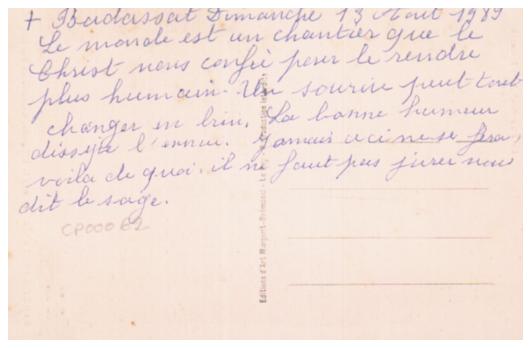 + Badassat Dimanche 13 Aout 1989
Le monde est un chantier que le
Christ nous confie pour le rendre
plus humain. Un sourire peut tout
changer en bien. La bonne humeur
dissipe l'ennui. Jamais ceci ne se fera,
voila de quoi il ne faut pas jurer nous
dit le sage.
CP000E2
Editions d'Art